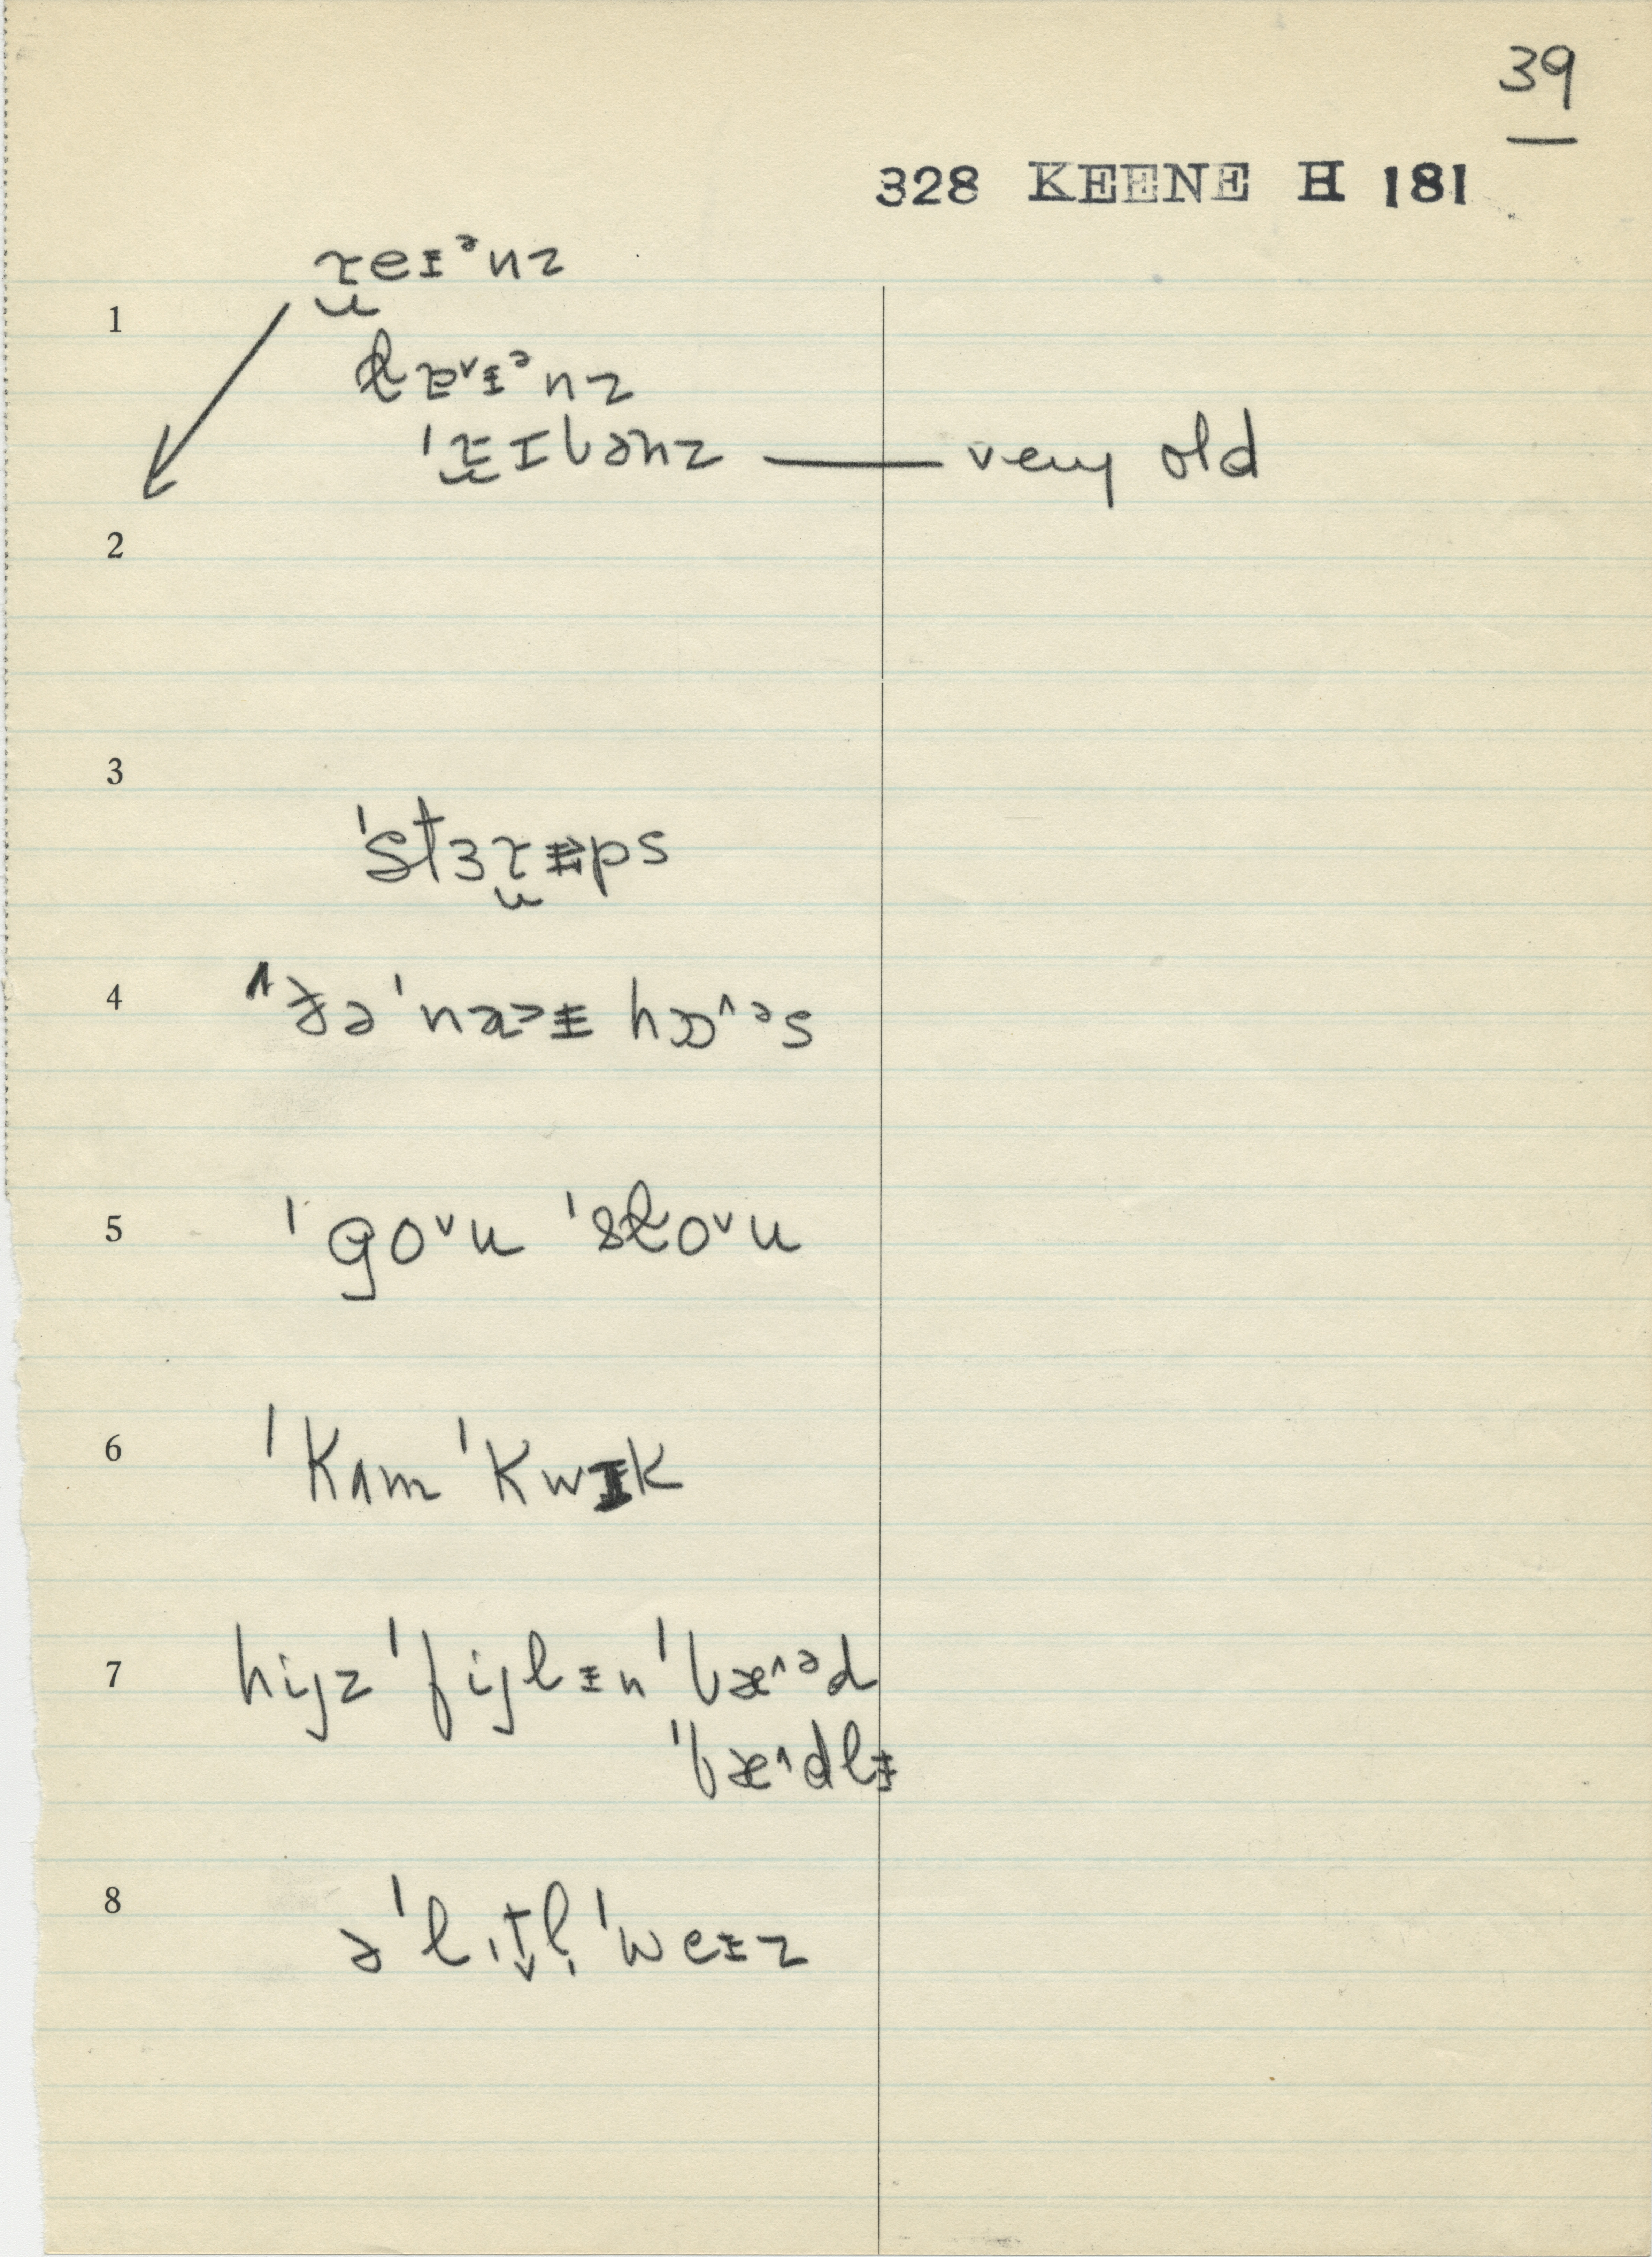 39
328 KEENE H 181
1
ɽeɪᵊnz
lɛˇɪᵊnz
ˈɽɪbənz — very old
2
3
ˈstɜɽəps
4
ˈnɔɪ hɒˆᵊs
5
ˈgoˇu ˈsloˇu
6
ˈkʌm ˈkwɪk
7
hijz ˈfijlɪn ˈbæˆᵊd
ˈbæˆdlɪ
8
ə ˈlɪtl̩ ˈweɪz